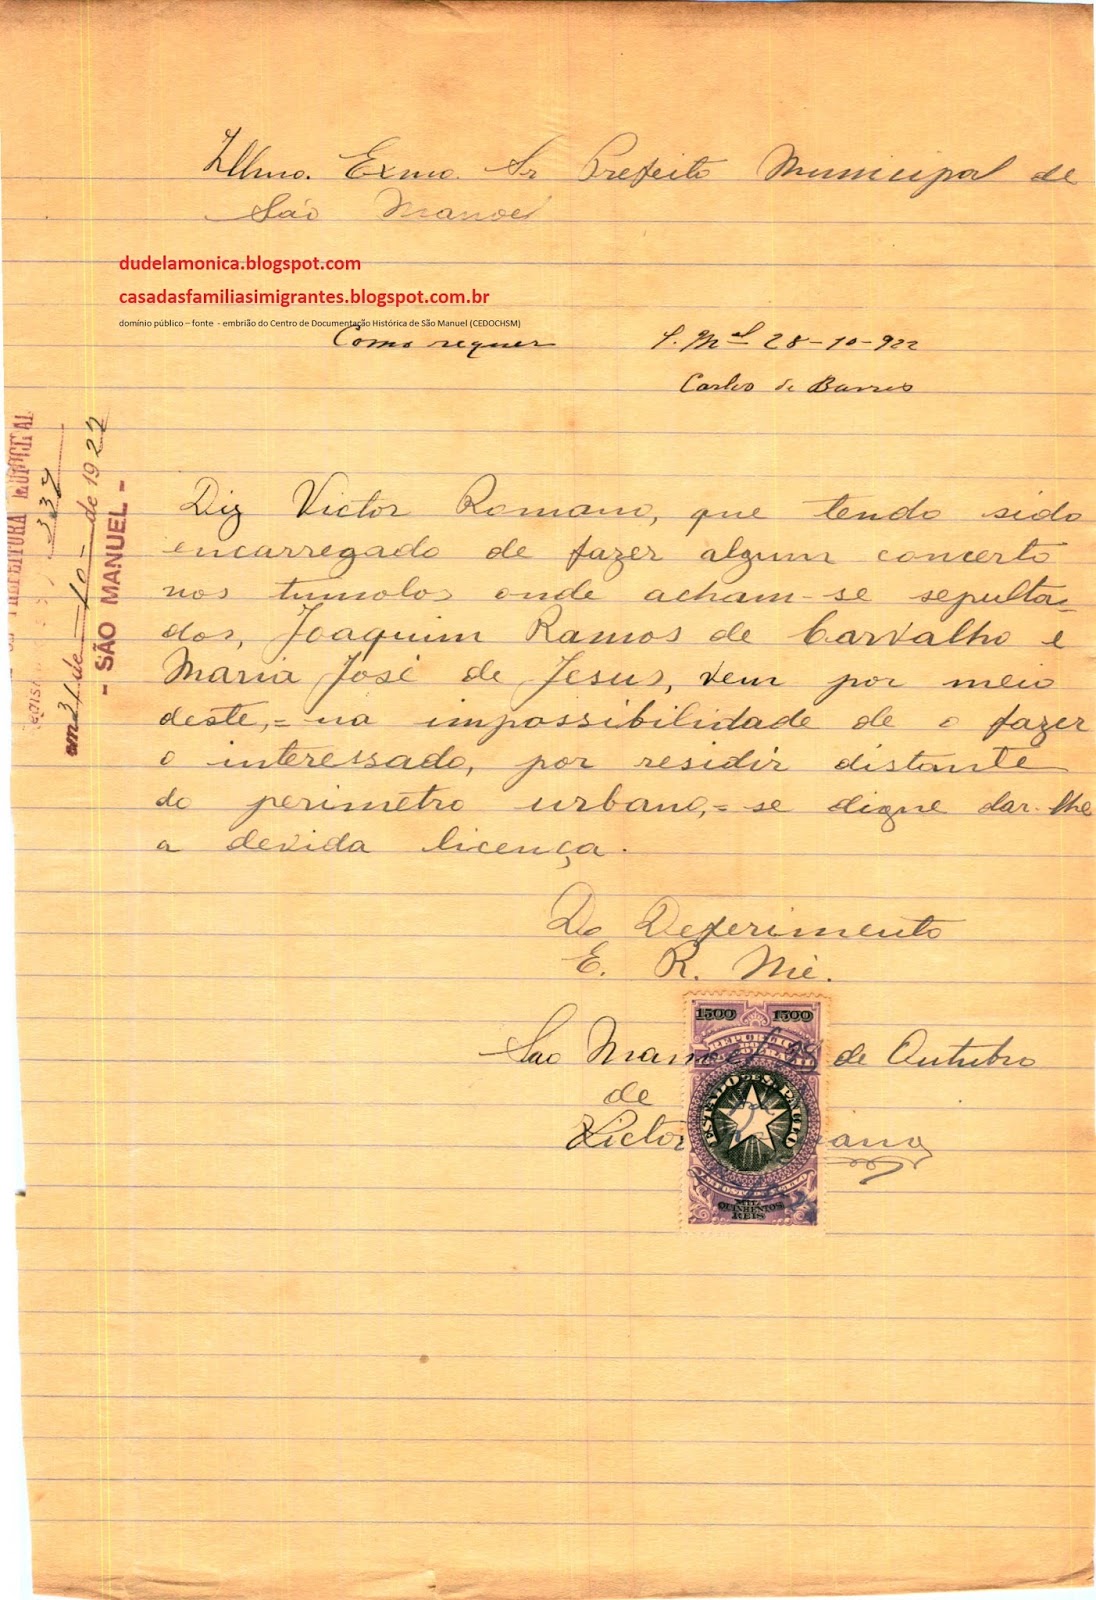 Illmo. Exmo. Sr Prefeito Municipal de
São Manoel
dudelamonica.blogspot.com
casadasfamiliasimigrantes.blogspot.com.br
domínio público – fonte - embrião do Centro de Documentação Histórica de São Manuel (CEDOCHSM)
Como requer S. Mel 28-10-922
Carlos de Barros
PREFEITURA MUNICIPAL
337
em 31 de 10 de 1922
- SÃO MANUEL -
Diz Victor Romano, que tendo sido
encarregado de fazer algum concerto
nos tumolos onde acham-se sepulta-
dos, Joaquim Ramos de Carvalho e
Maria José de Jesus, vem por meio
deste,= na impossibilidade de o fazer
o interessado, por residir distante
do perimetro urbano,= se digne dar-lhe
a devida licença.
Do Deferimento
E. R. Mê.
1500 1500
São Manoel 28 de Outubro
de
Victor Romano
ESTADO DE S. PAULO
MIL
QUINHENTOS
REIS